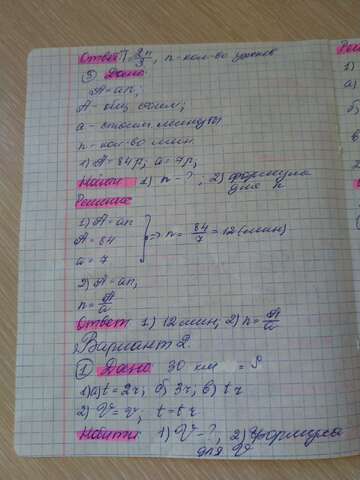 Ответ: T = 2n/3, n - кол-во ужинов
③ Дано:
A = an;
A - общ. стоим;
a - стоим минуты
n - кол-во мин.
1) A = 84р; a = 7р;
Найти 1) n - ?; 2) формула для n
Решение
1) A = an
A = 84
a = 7
=> n = 84/7 = 12 (мин)
2) A = an;
n = A/a
Ответ 1) 12 мин; 2) n = A/a
Вариант 2.
① Дано 30 км = S
1) а) t = 2ч; б) 3ч; в) t ч
2) V = v; t = t ч
Найти 1) V - ?, 2) Формулу для V
Реш
1)
а)
б)
1)